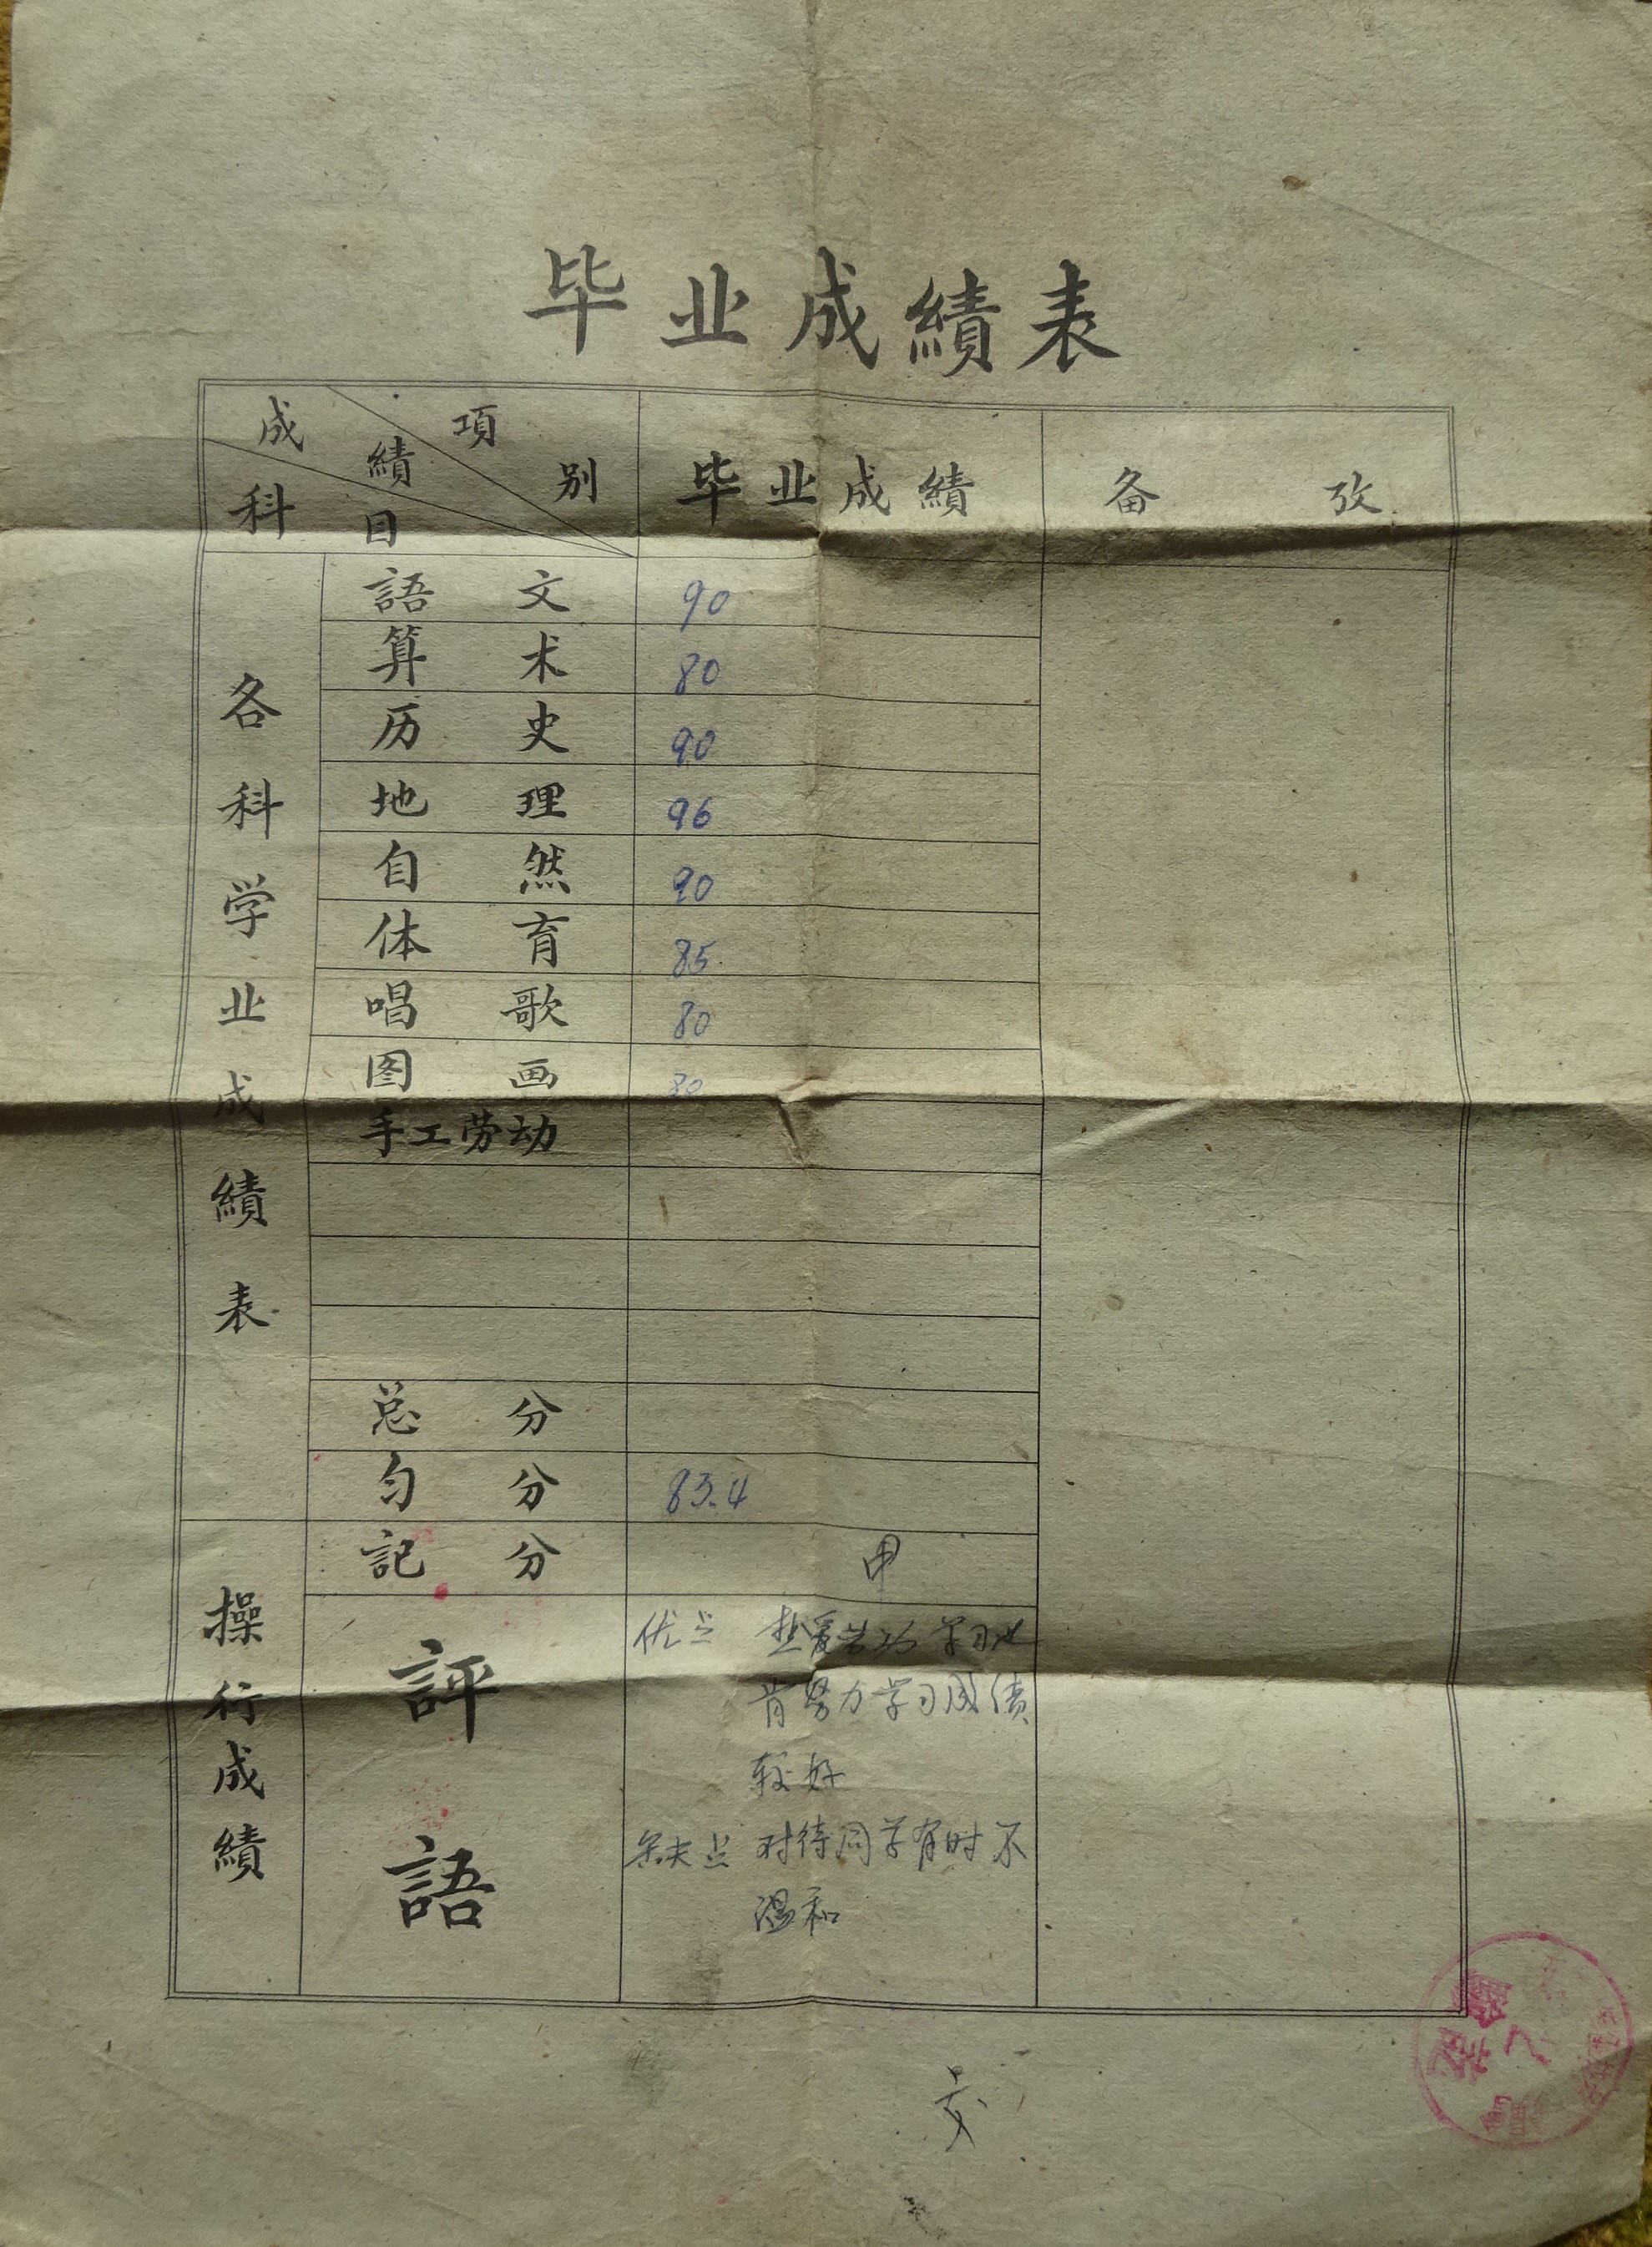 毕业成績表
成績 項别 科目
毕业成績
备攷
各科学业成績表
語文 90
算术 80
历史 90
地理 96
自然 90
体育 85
唱歌 80
图画 80
手工劳动
总分
匀分 83.4
操行成績
記分 甲
評語
优点 热爱劳动 学习也
肯努力学习成绩
较好
缺点 对待同学有时不
温和